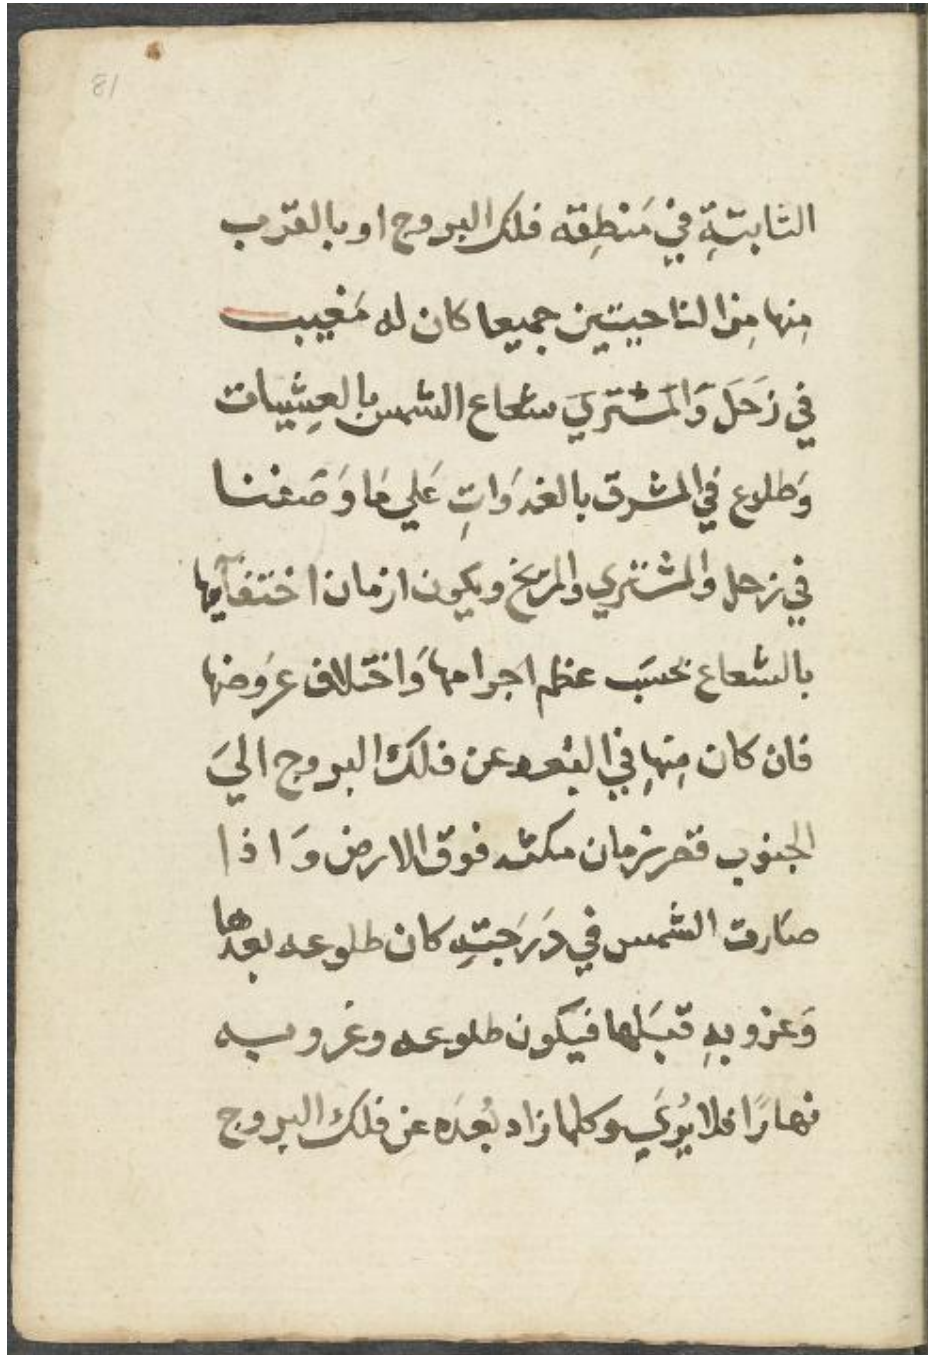 81
الثابتةِ في مَنْطِقة فلك البروج او بالقرب
مِنها مِن الناحيتين جميعا كان له مَغيب
في زَحَل وَالمَشتَري شعاع الشمس بالعِشيات
وَطلوع في المشرق بالغدَوَاتِ عَلي مَا وَصَفنا
في زحل والمشتري والمريخ ويكون ازمان اختفآيها
بالشعاع بحسَب عظم اجرامها وَاختلاف عرَوضها
فان كان مِنها في البُعد عن فلك البروج اليَ
الجنوب قصر زمان مكثه فوق الارض وَاذا
صَارت الشمس في دَرَجَتِه كان طلوعه بعدها
وَغروبهِ قبَلها فيكون طلوعه وغروبه
نهارًا فلا يُرَي وكلما زاد بُعدَه عن فلك البروج